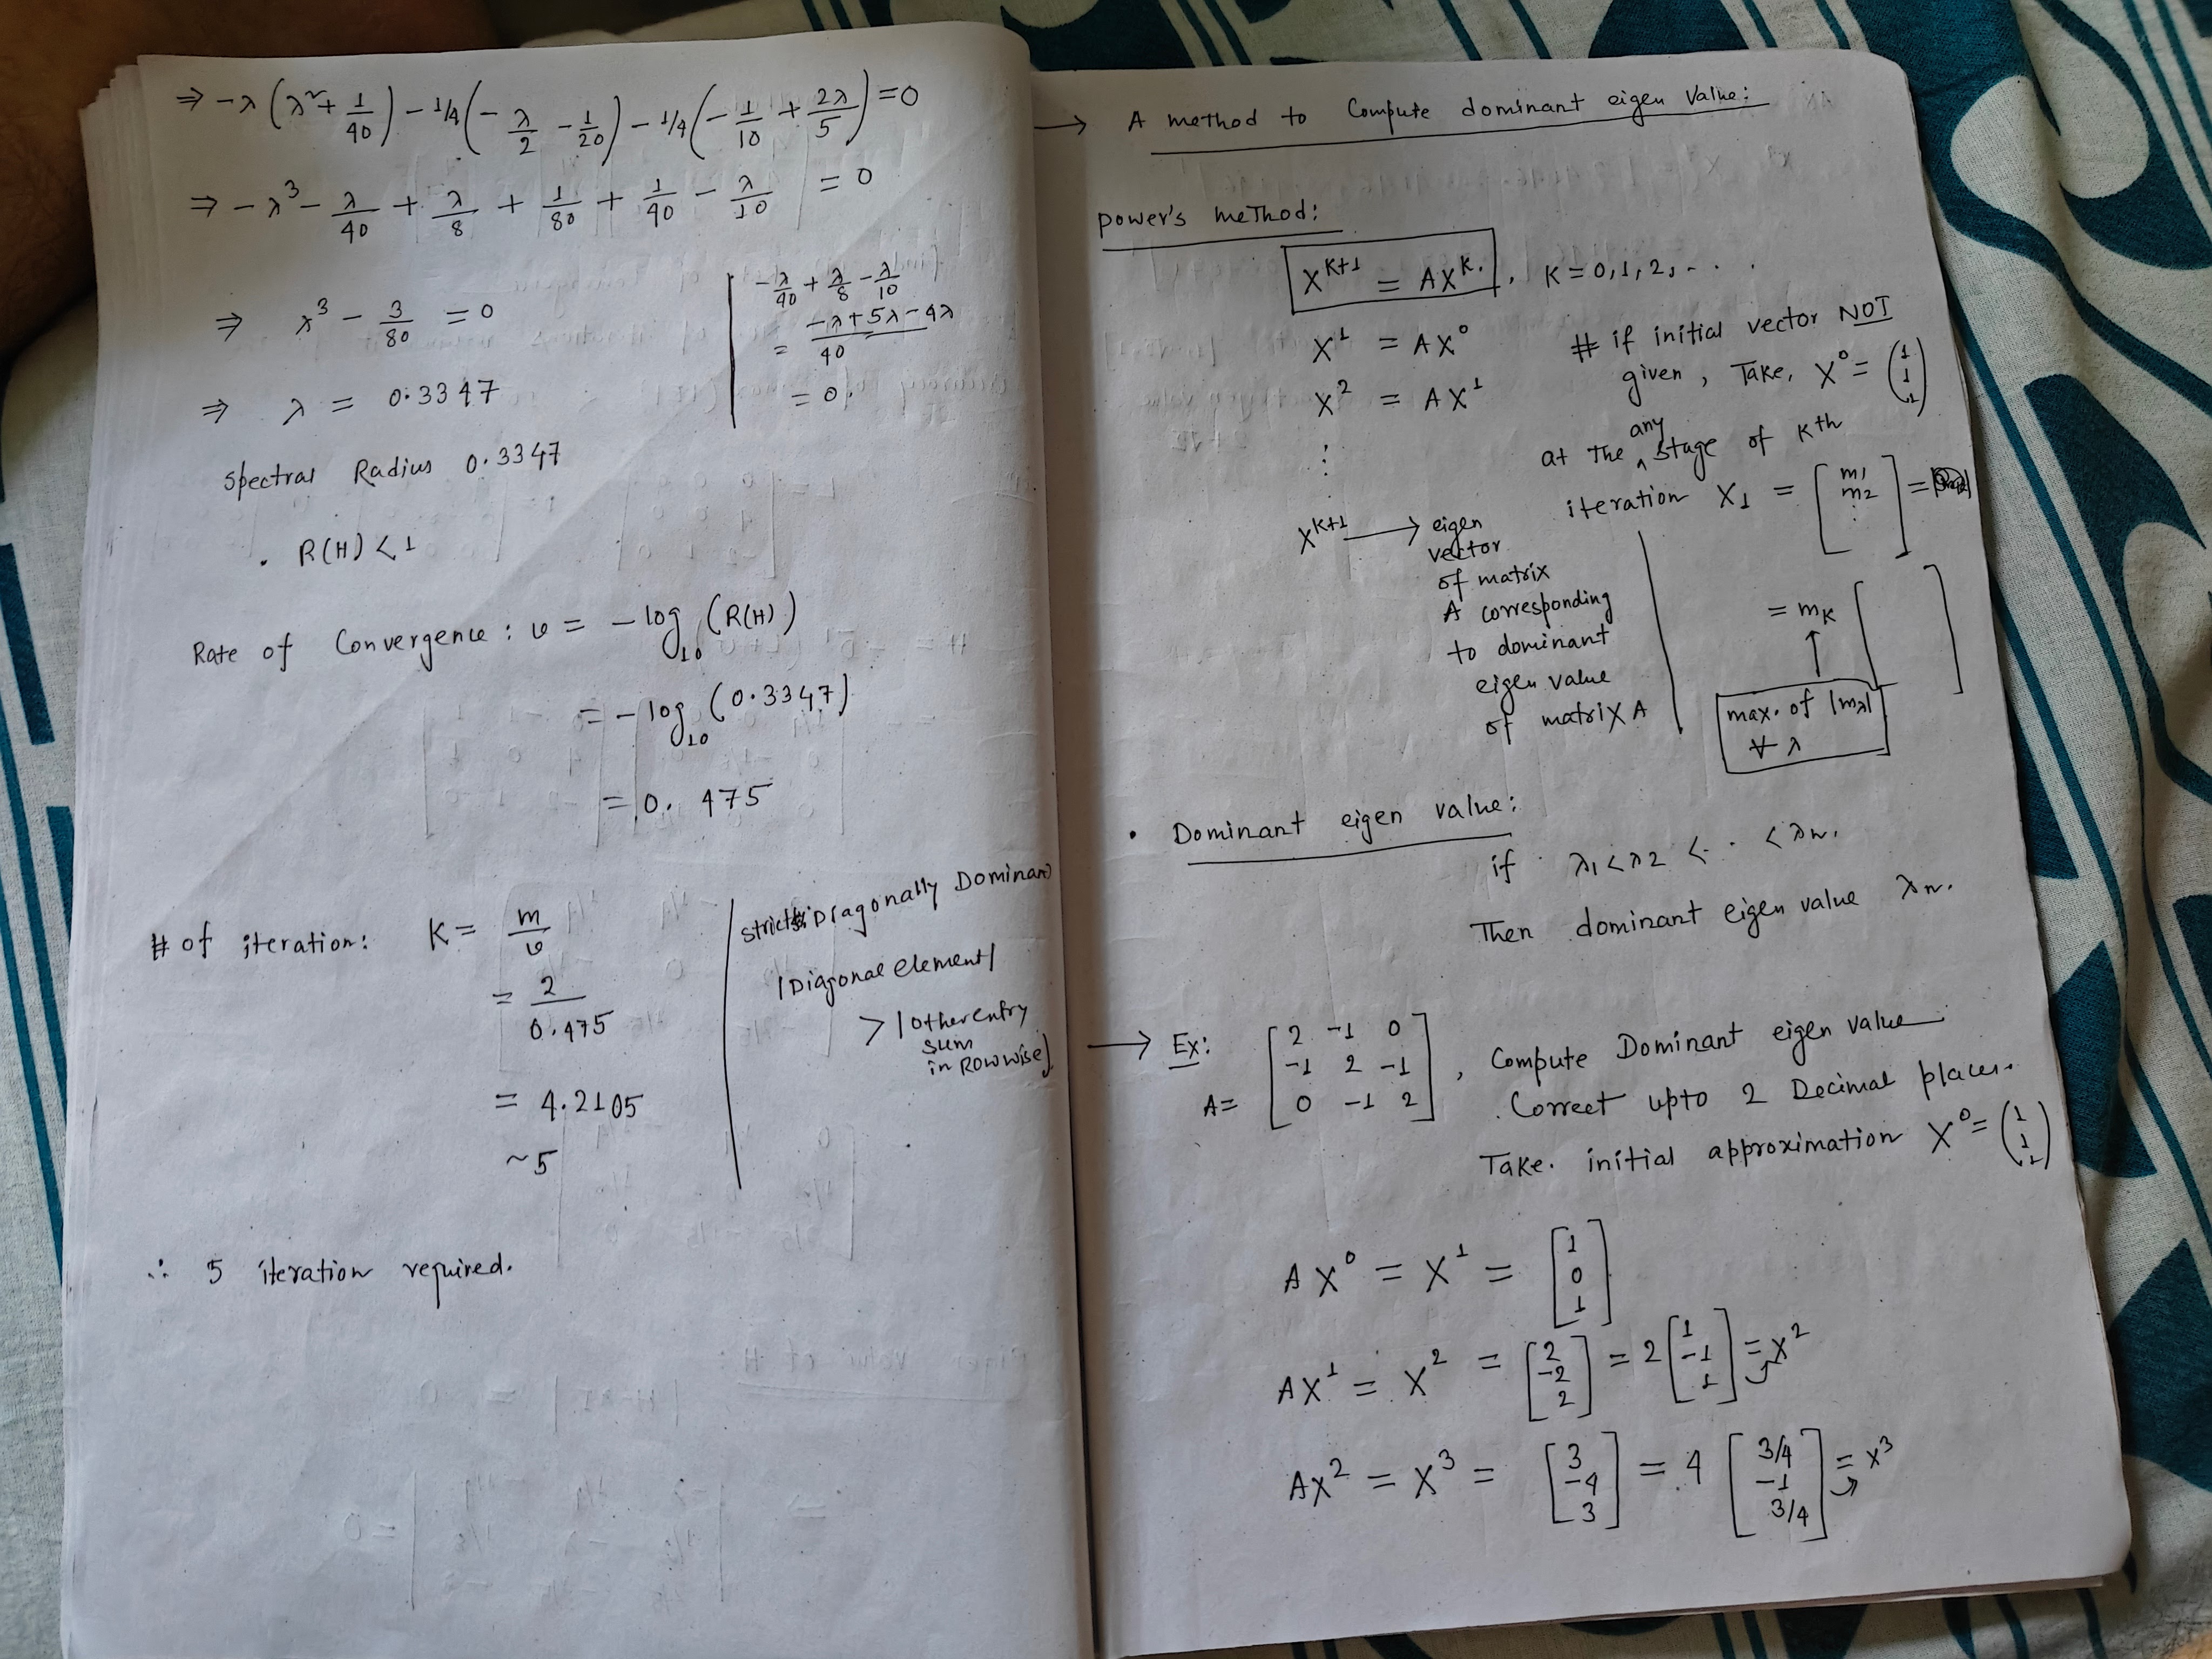 ⇒ -λ(λ² + 1/40) - 1/4(-λ/2 - 1/20) - 1/4(-1/10 + 2λ/5) = 0
⇒ -λ³ - λ/40 + λ/8 + 1/80 + 1/40 - λ/10 = 0
⇒ λ³ - 3/80 = 0
-λ/40 + λ/8 - λ/10
= -λ+5λ-4λ/40
= 0.
⇒ λ = 0.3347
Spectral Radius 0.3347
. R(H) < 1
Rate of Convergence : υ = -log₁₀ (R(H))
= -log₁₀ (0.3347)
= 0.475
# of iteration: K = m/υ
= 2/0.475
= 4.2105
~5
Diagonally Dominant
|Diagonal element|
> |Other entry
sum
in Row wise|
∴ 5 iteration required.
→ A method to Compute dominant eigen Value:
power's meThod:
X^K+1 = AX^K. , K = 0,1,2, - . .
X¹ = AX⁰
X² = AX¹
⋮
# if initial vector NOT
given, Take, X⁰ = (1 1 1)
at The any stage of Kth
iteration X₁ = [m1 m2 ⋮] =
= mK [ ]
↑
max. of |mλ|
∀ λ
X^K+1 → eigen
vector
of matrix
A corresponding
to dominant
eigen value
of matrix A
• Dominant eigen value:
if λ1 < λ2 < . . < λn.
Then dominant eigen value λn.
→ Ex: A = [2 -1 0; -1 2 -1; 0 -1 2] , Compute Dominant eigen value
Correct upto 2 Decimal places.
Take. initial approximation X⁰ = (1 1 1)
AX⁰ = X¹ = [1 0 1]
AX¹ = X² = [2 -2 2] = 2[1 -1 1] = X²
AX² = X³ = [3 -4 3] = 4[3/4 -1 3/4] = X³